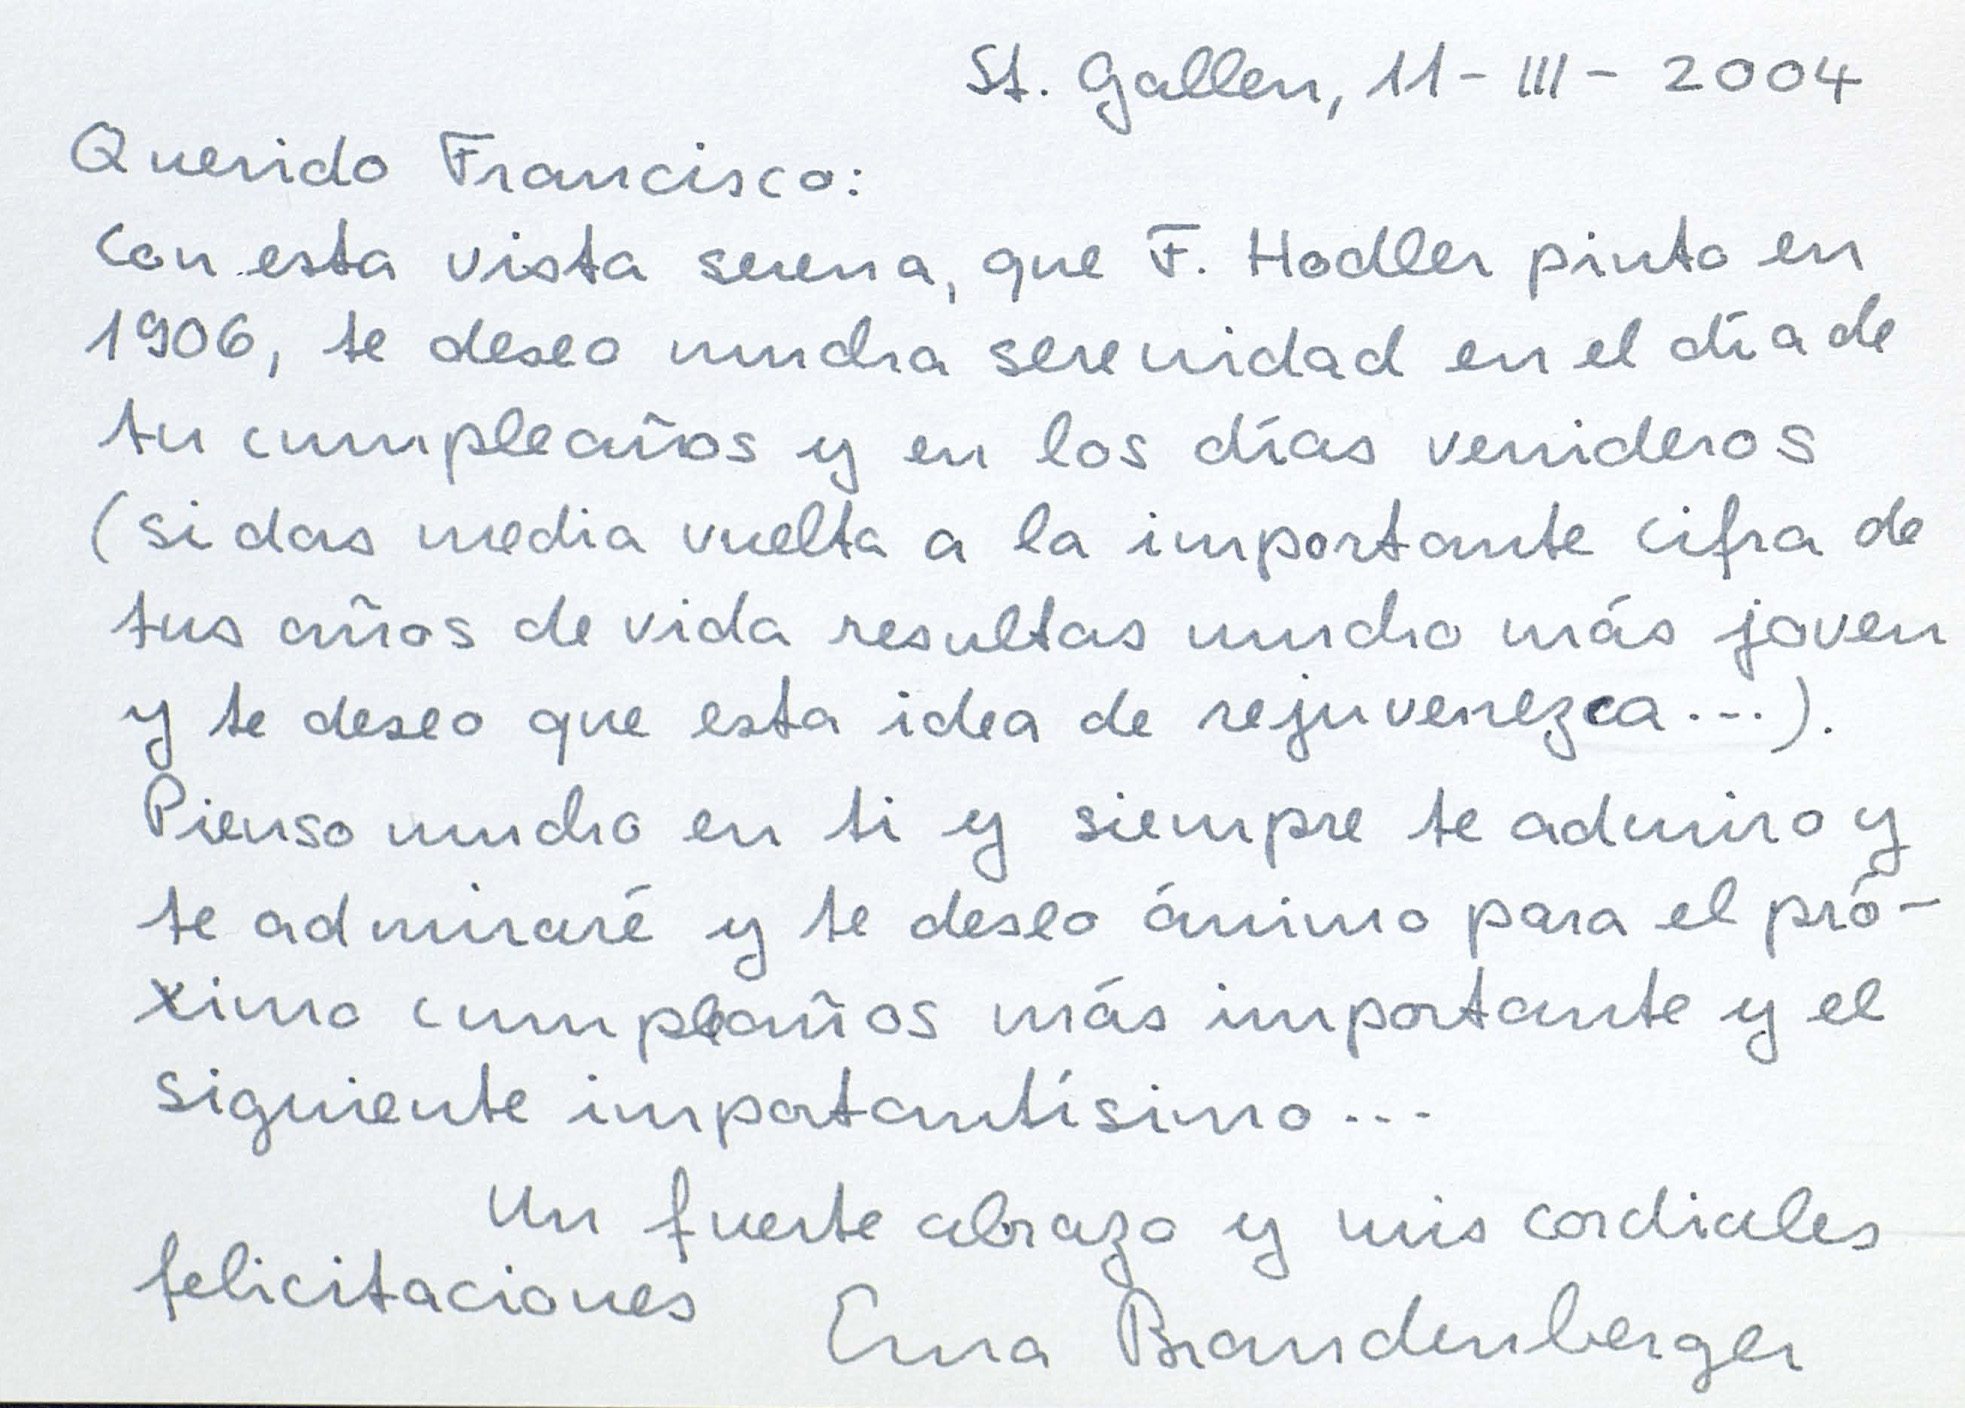 St. Gallen, 11-III-2004
Querido Francisco:
Con esta vista serena, que F. Hodler pinto en
1906, te deseo mucha serenidad en el día de
tu cumpleaños y en los días venideros
(si das media vuelta a la importante cifra de
tus años de vida resultas mucho más joven
y te deseo que esta idea de rejuvenezca...).
Pienso mucho en ti y siempre te admiro y
te admiraré y te deseo ánimo para el pró-
ximo cumpleaños más importante y el
siguiente importantísimo...
Un fuerte abrazo y mis cordiales
felicitaciones Erna Brandenberger